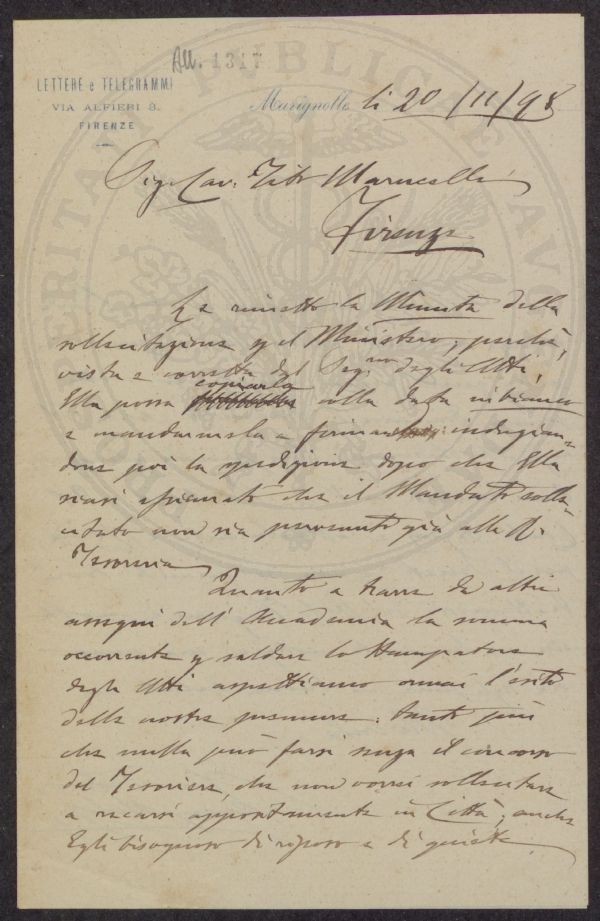 All. 1317
LETTERE e TELEGRAMMI
VIA ALFIERI 3.
FIRENZE
Marignolle, li 20/11/98
Sig. Cav. Tito Marucelli
Firenze
Le rimetto la Minuta della
sollecitazione pel Ministero, perchè,
vista e corretta dal Segrio degli Atti,
Ella possa copiarla colla data in bianco
e mandarmela a firmare indugian=
done poi la spedizione dopo che Ella
siasi assicurato che il Mandato solle=
citato non sia pervenuto già alla R.
Tesoreria
Quanto a trarre da altri
assegni dell'Accademia la somma
occorrente p saldare lo Stampatore
degli Atti aspettiamo ormai l'esito
delle nostre premure: tanto più
che nulla può farsi senza il concorso
del Tesoriere, che non vorrei sollecitare
a recarsi appositamente in Città, anche
Egli bisognoso di riposo e di quiete